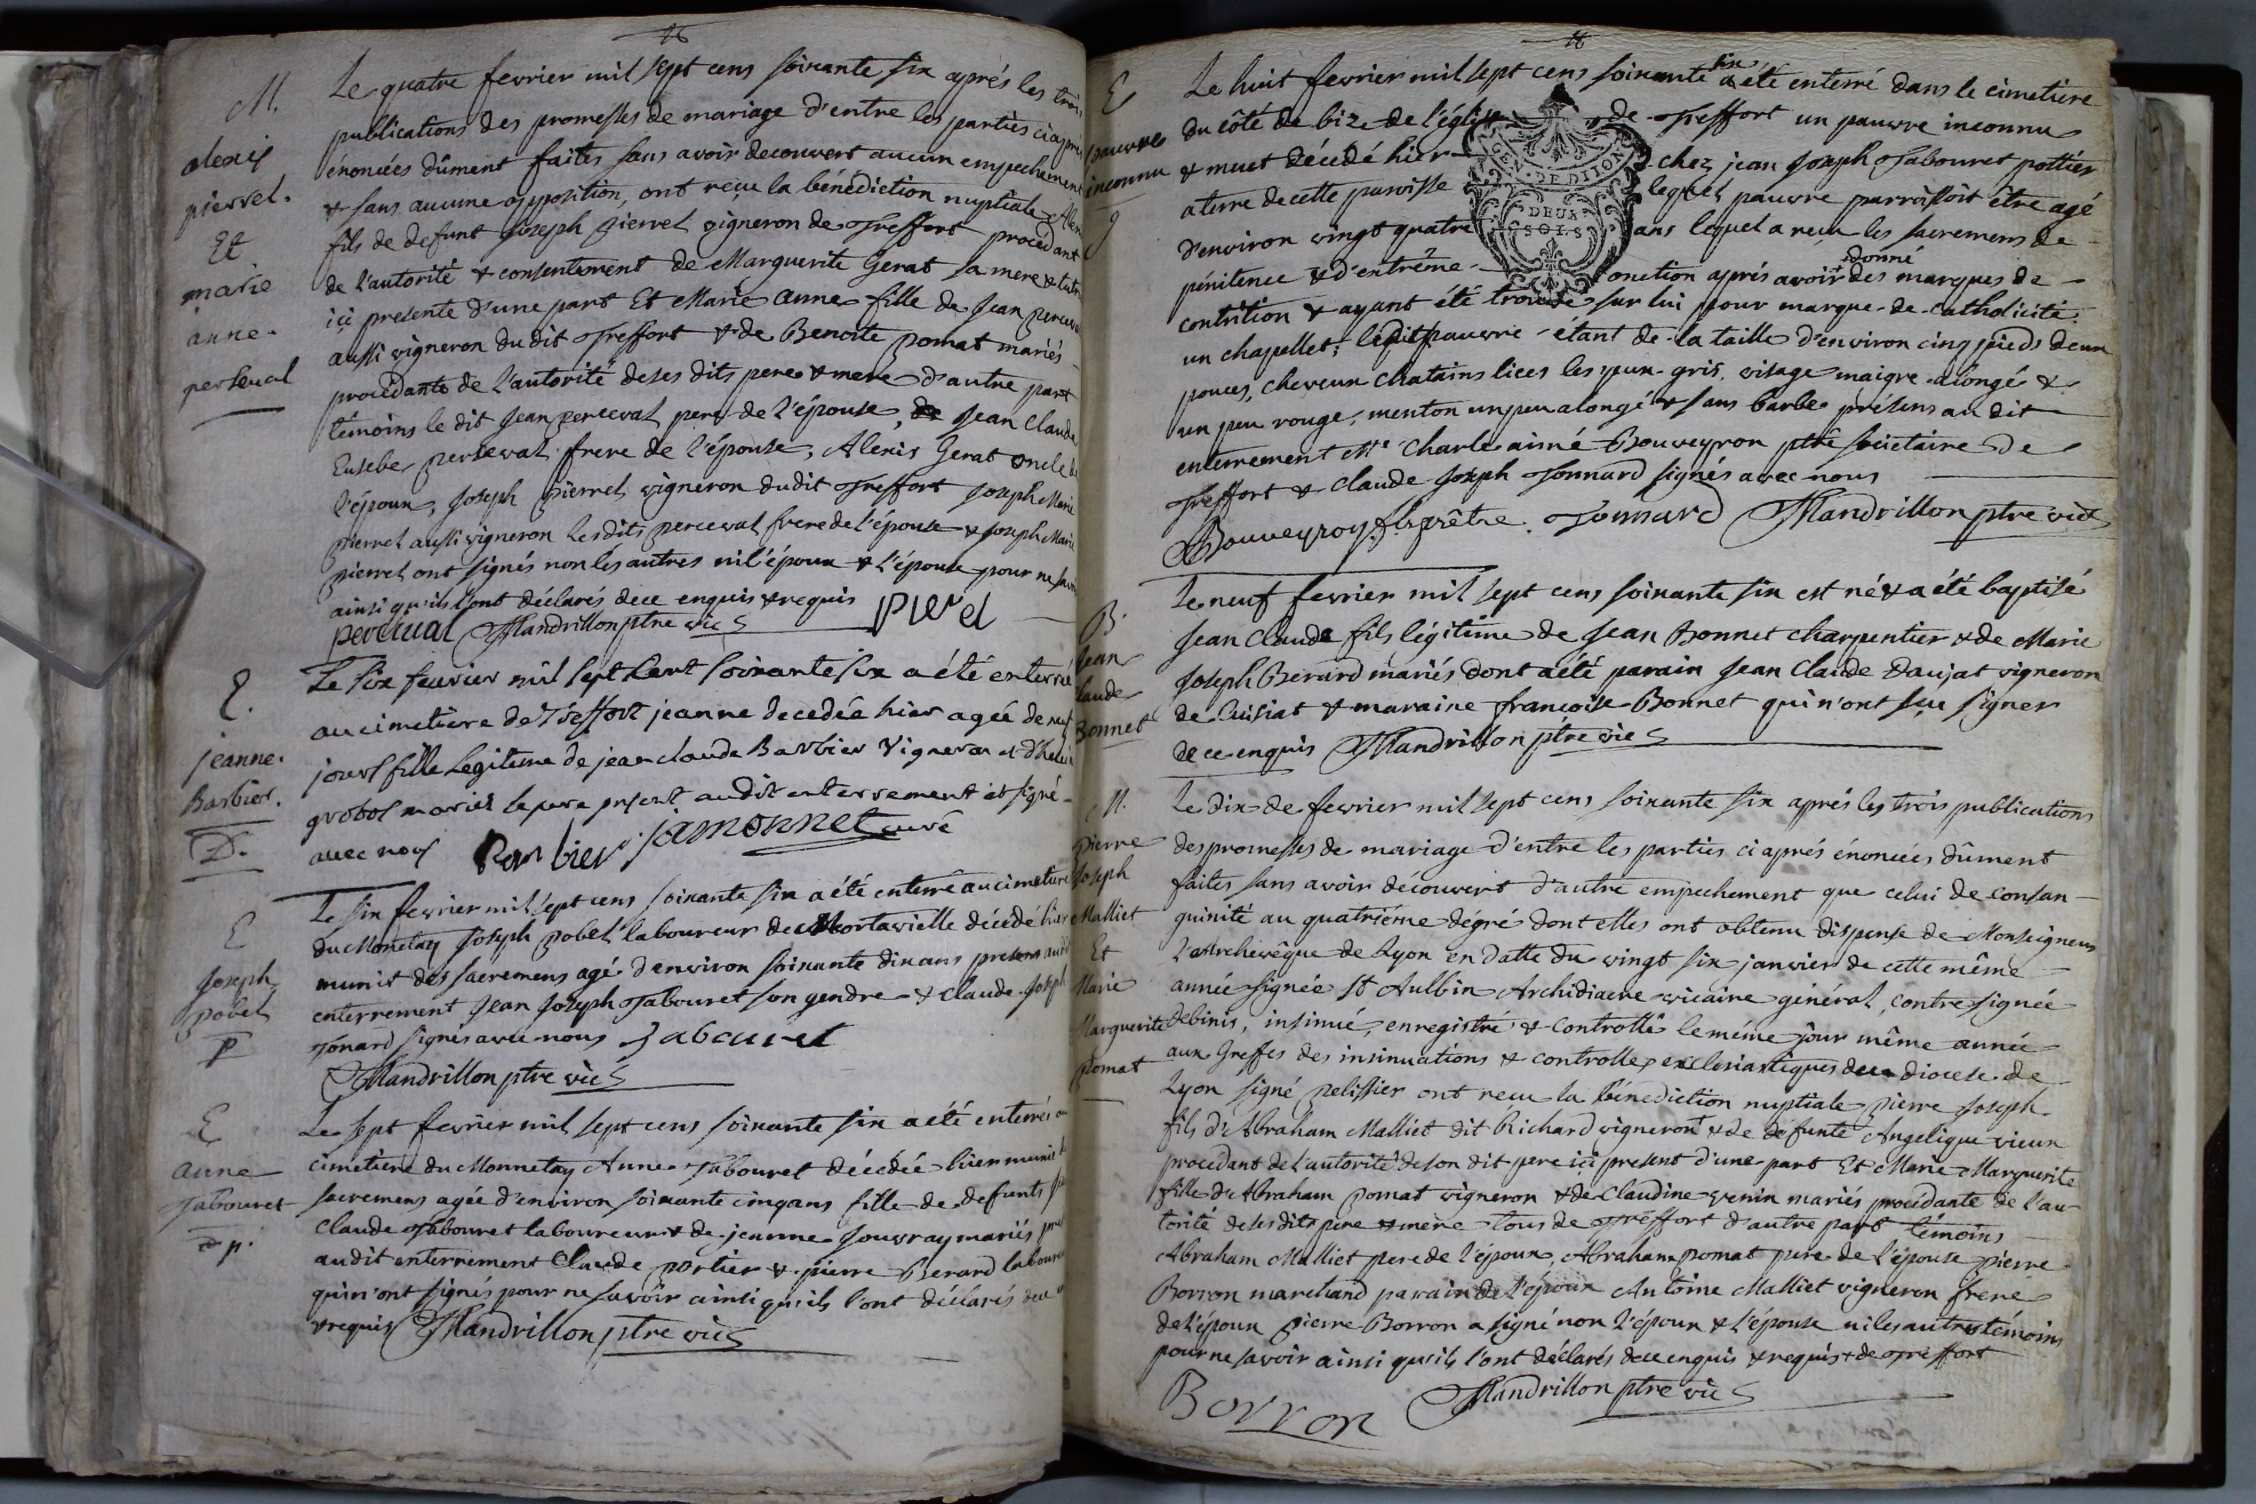 M.
alexis
pierrel.
Et
marie
anne
perseval
Le quatre fevrier mil sept cens soixante six aprés les trois
publications des promesses de mariage d'entre les parties ci aprés
énoncées dûment faites sans avoir decouvert aucun empechement
& sans aucune opposition, ont reçu la bénédiction nuptiale Alexis
fils de defunt Joseph pierrel vigneron de Treffort procedant
de l'autorité & consentement de Marguerite Gerat sa mere & tutrice
ici presente d'une part Et Marie anne fille de Jean perceval
aussi vigneron du dit Treffort & de Benoite pomat mariés
procédante de l'autorité de ses dits pere & mere d'autre part
temoins le dit Jean perceval pere de l'épouse, Jean Claude
Eusebe perseval frere de l'épouse, Alexis Gerat oncle de
l'époux, Joseph pierrel vigneron dudit Treffort Joseph Marie
pierrel aussi vigneron les dits perceval frere de l'épouse & Joseph Marie
pierrel ont signés non les autres ni l'époux & l'épouse pour ne savoir
ainsi qu'ils l'ont déclarés de ce enquis & requis
percival Mandrillon ptre vic pierel
E.
jeanne
Barbier.
D.
Le six feuvrier mil sept cent soixante six a été enterrée
au cimetiere de Treffort jeanne decedée hier agée de neuf
jours fille legitime de jean claude Barbier vigneron et d'
grobos mariés le pere présent au dit enterrement et signé
avec nous Barbier jamonnet curé
E
Joseph
pobel
P
Le six fevrier mil sept cens soixante six a été enterré au cimetiere
du Monetay Joseph pobel laboureur de Mortavielle décédé hier
munit des sacremens agé d'environ soixante dix ans presens audit
enterrement Jean Joseph Tabouret son gendre & Claude Joseph
Tonard signés avec nous Tabouret
Mandrillon ptre vic
E
anne
Tabouret
p.
Le sept fevrier mil sept cens soixante six a été enterrés au
cimetiere du Monnetay Anne Tabouret décédée hier munie des
sacremens agée d'environ soixante cinq ans fille de defunts
Claude Tabouret laboureur & de jeanne Jouvray mariés
audit enterrement Claude portier & pierre Berard laboureurs
qui n'ont signés pour ne savoir ainsi qu'ils l'ont déclarés de ce
& requis Mandrillon ptre vic
E
pauvre
inconnu
Le huit fevrier mil sept cens soixante six a été enterré dans le cimetiere
du côté de bize de l'église de Treffort un pauvre inconnu
& muet décédé hier chez jean Joseph Tabouret pottier
a terre de cette paroisse lequel pauvre parroissoit être agé
d'environ vingt quatre ans lequel a reçu les sacremens de
pénitence & d'extrême onction aprés avoir donné des marques de
contrition & ayant été trouvé sur lui pour marque de catholicité
un chapellet; ledit pauvre étant de la taille d'environ cinq pieds deux
pouces, cheveux chatains lices les yeux gris, visage maigre alongé &
un peu rouge, menton un peu alongé & sans barbe présens au dit
enterrement Mre Charle aimé Bouveyron ptre sociétaire de
Treffort & Claude Joseph Tonnard signés avec nous
Bouveyron prêtre Tonnard Mandrillon ptre vic
GEN. DE DIJON
DEUX
SOLS
B.
Jean
Claude
Bonnet
Le neuf fevrier mil sept cens soixante six est né & a été baptisé
Jean Claude fils légitime de Jean Bonnet charpentier & de Marie
Joseph Berard mariés dont a été parain Jean Claude Daujat vigneron
de Cuisiat & maraine françoise Bonnet qui n'ont sçu signer
de ce enquis Mandrillon ptre vic
M.
Pierre
Joseph
Malliet
Et
Marie
Marguerite
Pomat
Le dix de fevrier mil sept cens soixante six aprés les trois publications
des promesses de mariage d'entre les parties ci aprés énoncées dûment
faites sans avoir découvert d'autre empechement que celui de consan-
guinité au quatriéme dégré dont elles ont obtenu dispense de Monseigneur
l'archevêque de Lyon en datte du vingt six janvier de cette même
année signée St Aulbin Archidiacre vicaire général, contre signée
Debinis, insinué, enregistré & controllé le même jour même année
aux Greffes des insinuations & controlles ecclesiastiques du diocese de
Lyon signé pelissier ont recu la bénédiction nuptiale pierre Joseph
fils d'Abraham Malliet dit Richard vigneron & de defunte Angelique vieux
procedant de l'autorité de son dit pere ici present d'une part Et Marie Marguerite
fille d'Abraham pomat vigneron & de Claudine venin mariés procédante de l'au-
torité de ses dits pere & mere tous de Treffort d'autre part témoins
Abraham Malliet pere de l'époux, Abraham pomat pere de l'épouse pierre
Borron marchand parain de l'époux Antoine Malliet vigneron frere
de l'époux pierre Borron a signé non l'époux & l'épouse ni les autres témoins
pour ne savoir ainsi qu'ils l'ont déclarés de ce enquis & requis & de Treffort
Borron Mandrillon ptre vic